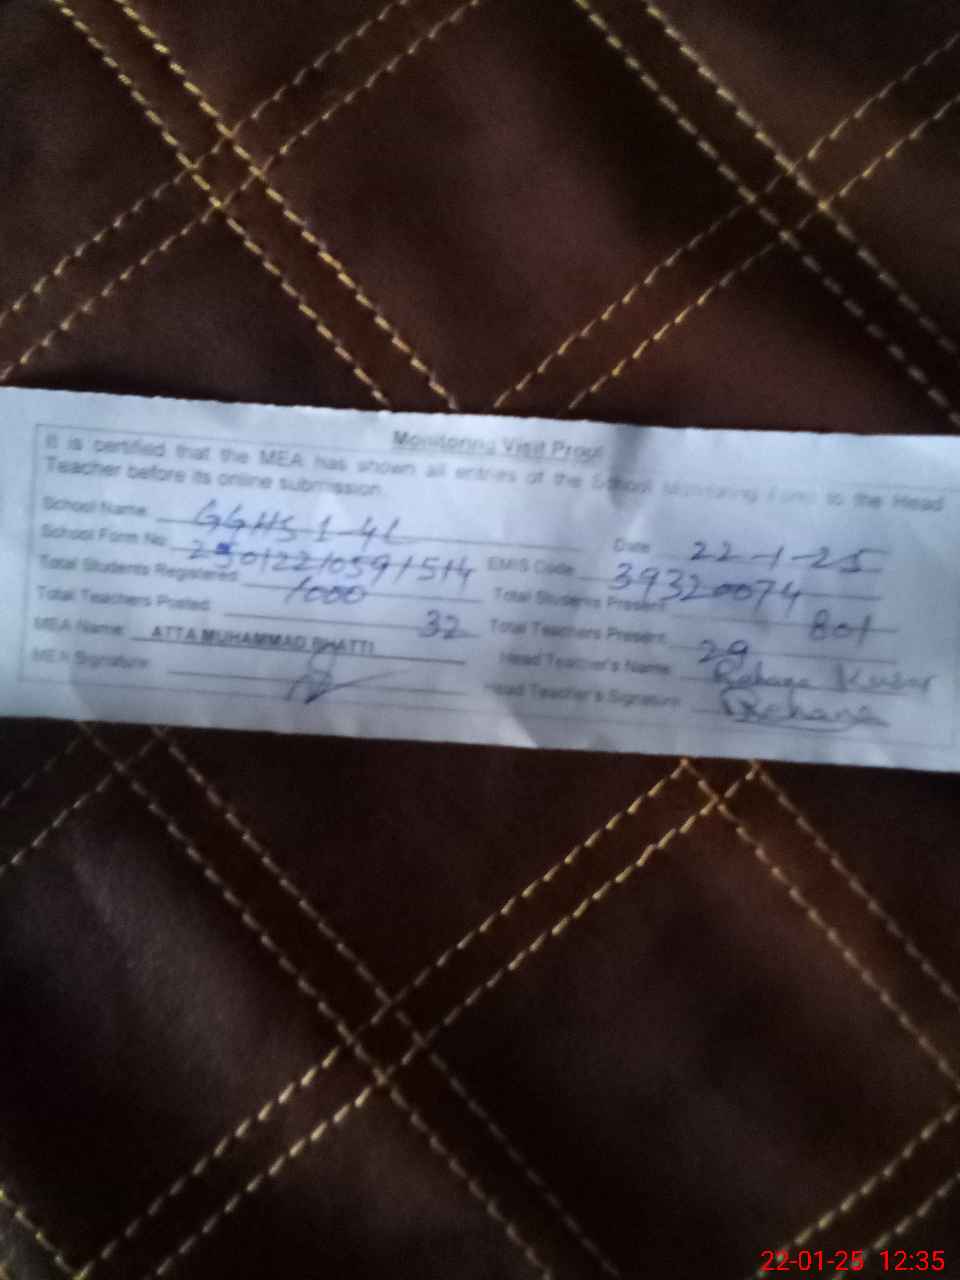 Monitoring Visit Proof
It is certified that the MEA has shown all entries of the School Monitoring Form to the Head
Teacher before its online submission.
School Name: GGHS 1-4L Date 22-1-25
School Form No. EMIS Code 39320074
Total Students Registered: 1000 Total Students Present 801
Total Teachers Posted: 32 Total Teachers Present: 29
MEA Name: ATTA MUHAMMAD BHATTI Head Teacher's Name
MEA Signature: Head Teacher's Signature:
22-01-25 12:35